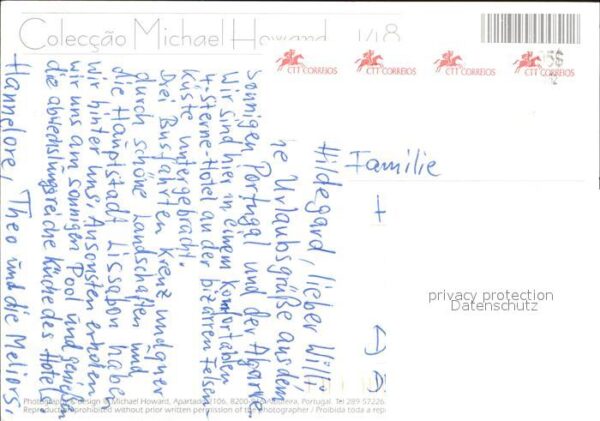 Colecção Michael Howard 1/18
CTT CORREIOS CTT CORREIOS CTT CORREIOS CTT CORREIOS
Familie
Hildegard, lieber Willi,
he Urlaubsgrüße aus dem
sonnigen Portugal und der Algarve.
Wir sind hier in einem komfortablen
4-Sterne-Hotel an der bizarren Felsen-
küste untergebracht.
Drei Busfahrten kreuz und quer
durch schöne Landschaften und
die Hauptstadt Lissabon haben
wir hinter uns. Ansonsten erholen
wir uns am sonnigen Pool und genießen
die abwechslungsreiche Küche des Hotels.
Hannelore, Theo und die Meliors,
privacy protection
Datenschutz
Photography & design © Michael Howard, Apartado 2106, 8200 Albufeira, Portugal Tel 289-57226
Reproduction prohibited without prior written permission of the photographer / Proibida toda a rep